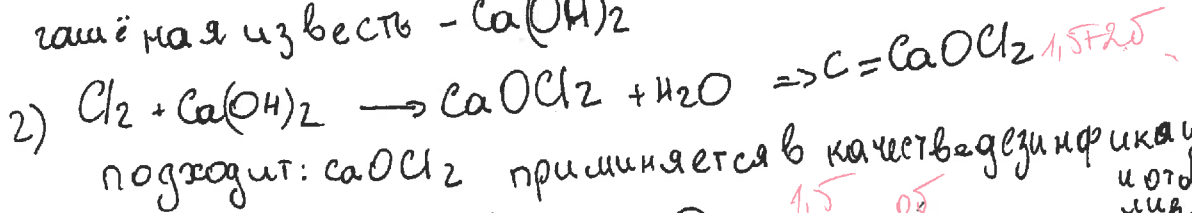 гашёная известь - Ca(OH)2
2) Cl2 + Ca(OH)2 → CaOCl2 + H2O => C = CaOCl2 1,5+2б
подходит: CaOCl2 приминяется в качестве дезинфикаци
и отб
лив
1,5 0б